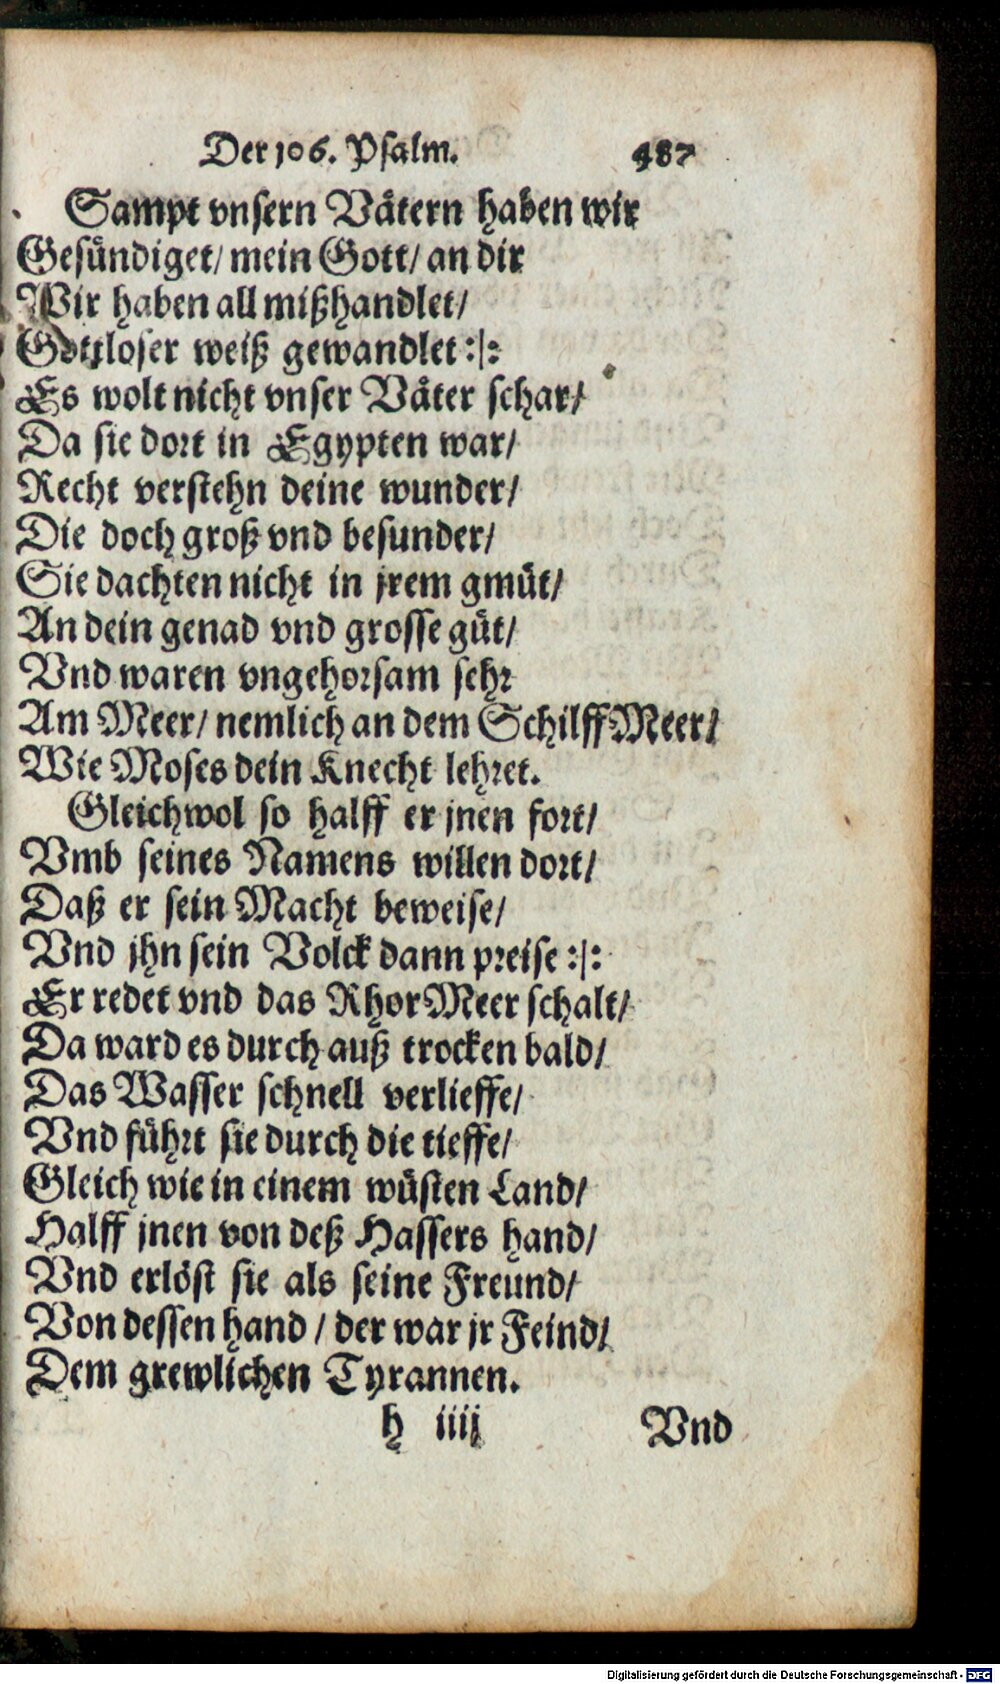 Der 106. Psalm. 487
Sampt vnsern Vätern haben wir
Gesündiget/ mein Gott/ an dir
Wir haben all mißhandlet/
Gottloser weiß gewandlet :|:
Es wolt nicht vnser Väter schar/
Da sie dort in Egypten war/
Recht verstehn deine wunder/
Die doch groß vnd besunder/
Sie dachten nicht in jrem gmüt/
An dein genad vnd grosse güt/
Vnd waren vngehorsam sehr
Am Meer/ nemlich an dem SchilffMeer/
Wie Moses dein Knecht lehret.
Gleichwol so halff er jnen fort/
Vmb seines Namens willen dort/
Daß er sein Macht beweise/
Vnd jhn sein Volck dann preise :|:
Er redet vnd das RhorMeer schalt/
Da ward es durch auß trocken bald/
Das Wasser schnell verlieffe/
Vnd führt sie durch die tieffe/
Gleich wie in einem wüsten Land/
Halff jnen von deß Hassers hand/
Vnd erlöst sie als seine Freund/
Von dessen hand / der war jr Feind/
Dem grewlichen Tyrannen.
h iiij Vnd
Digitalisierung gefördert durch die Deutsche Forschungsgemeinschaft - DFG